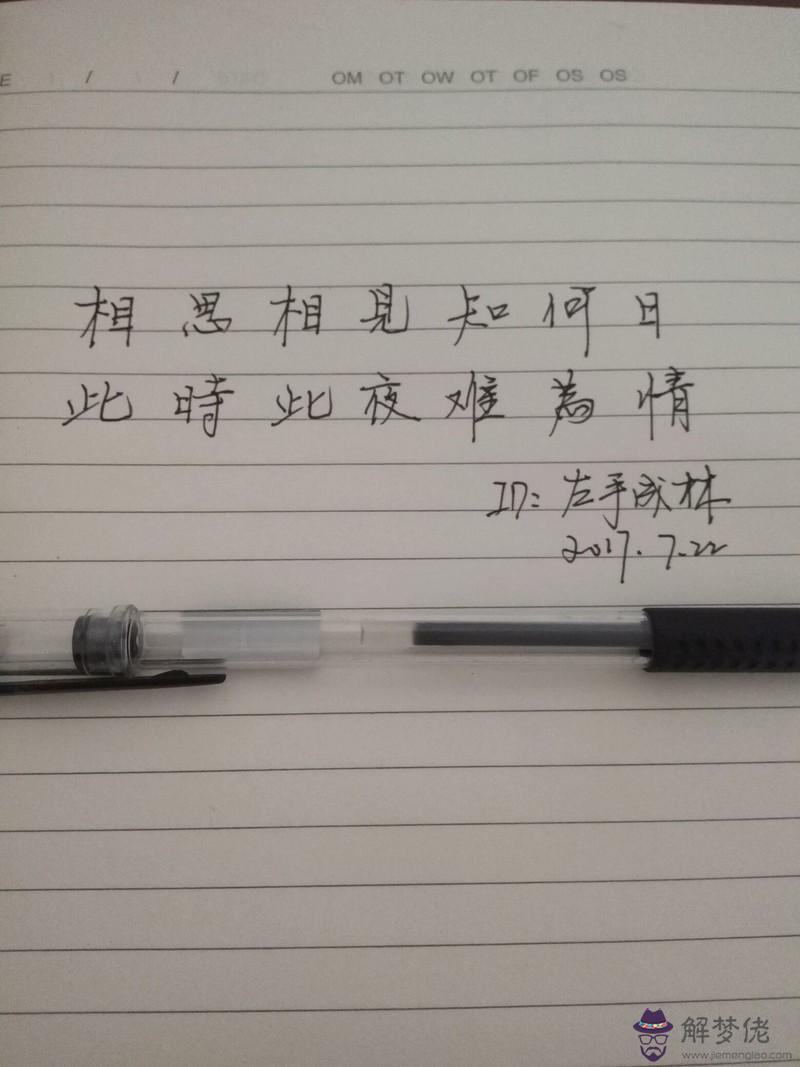 E / / OM OT OW OT OF OS OS
相思相見知何日
此時此夜难為情
ID: 左手成林
2017.7.22
解梦佬
www.jiemenglao.com